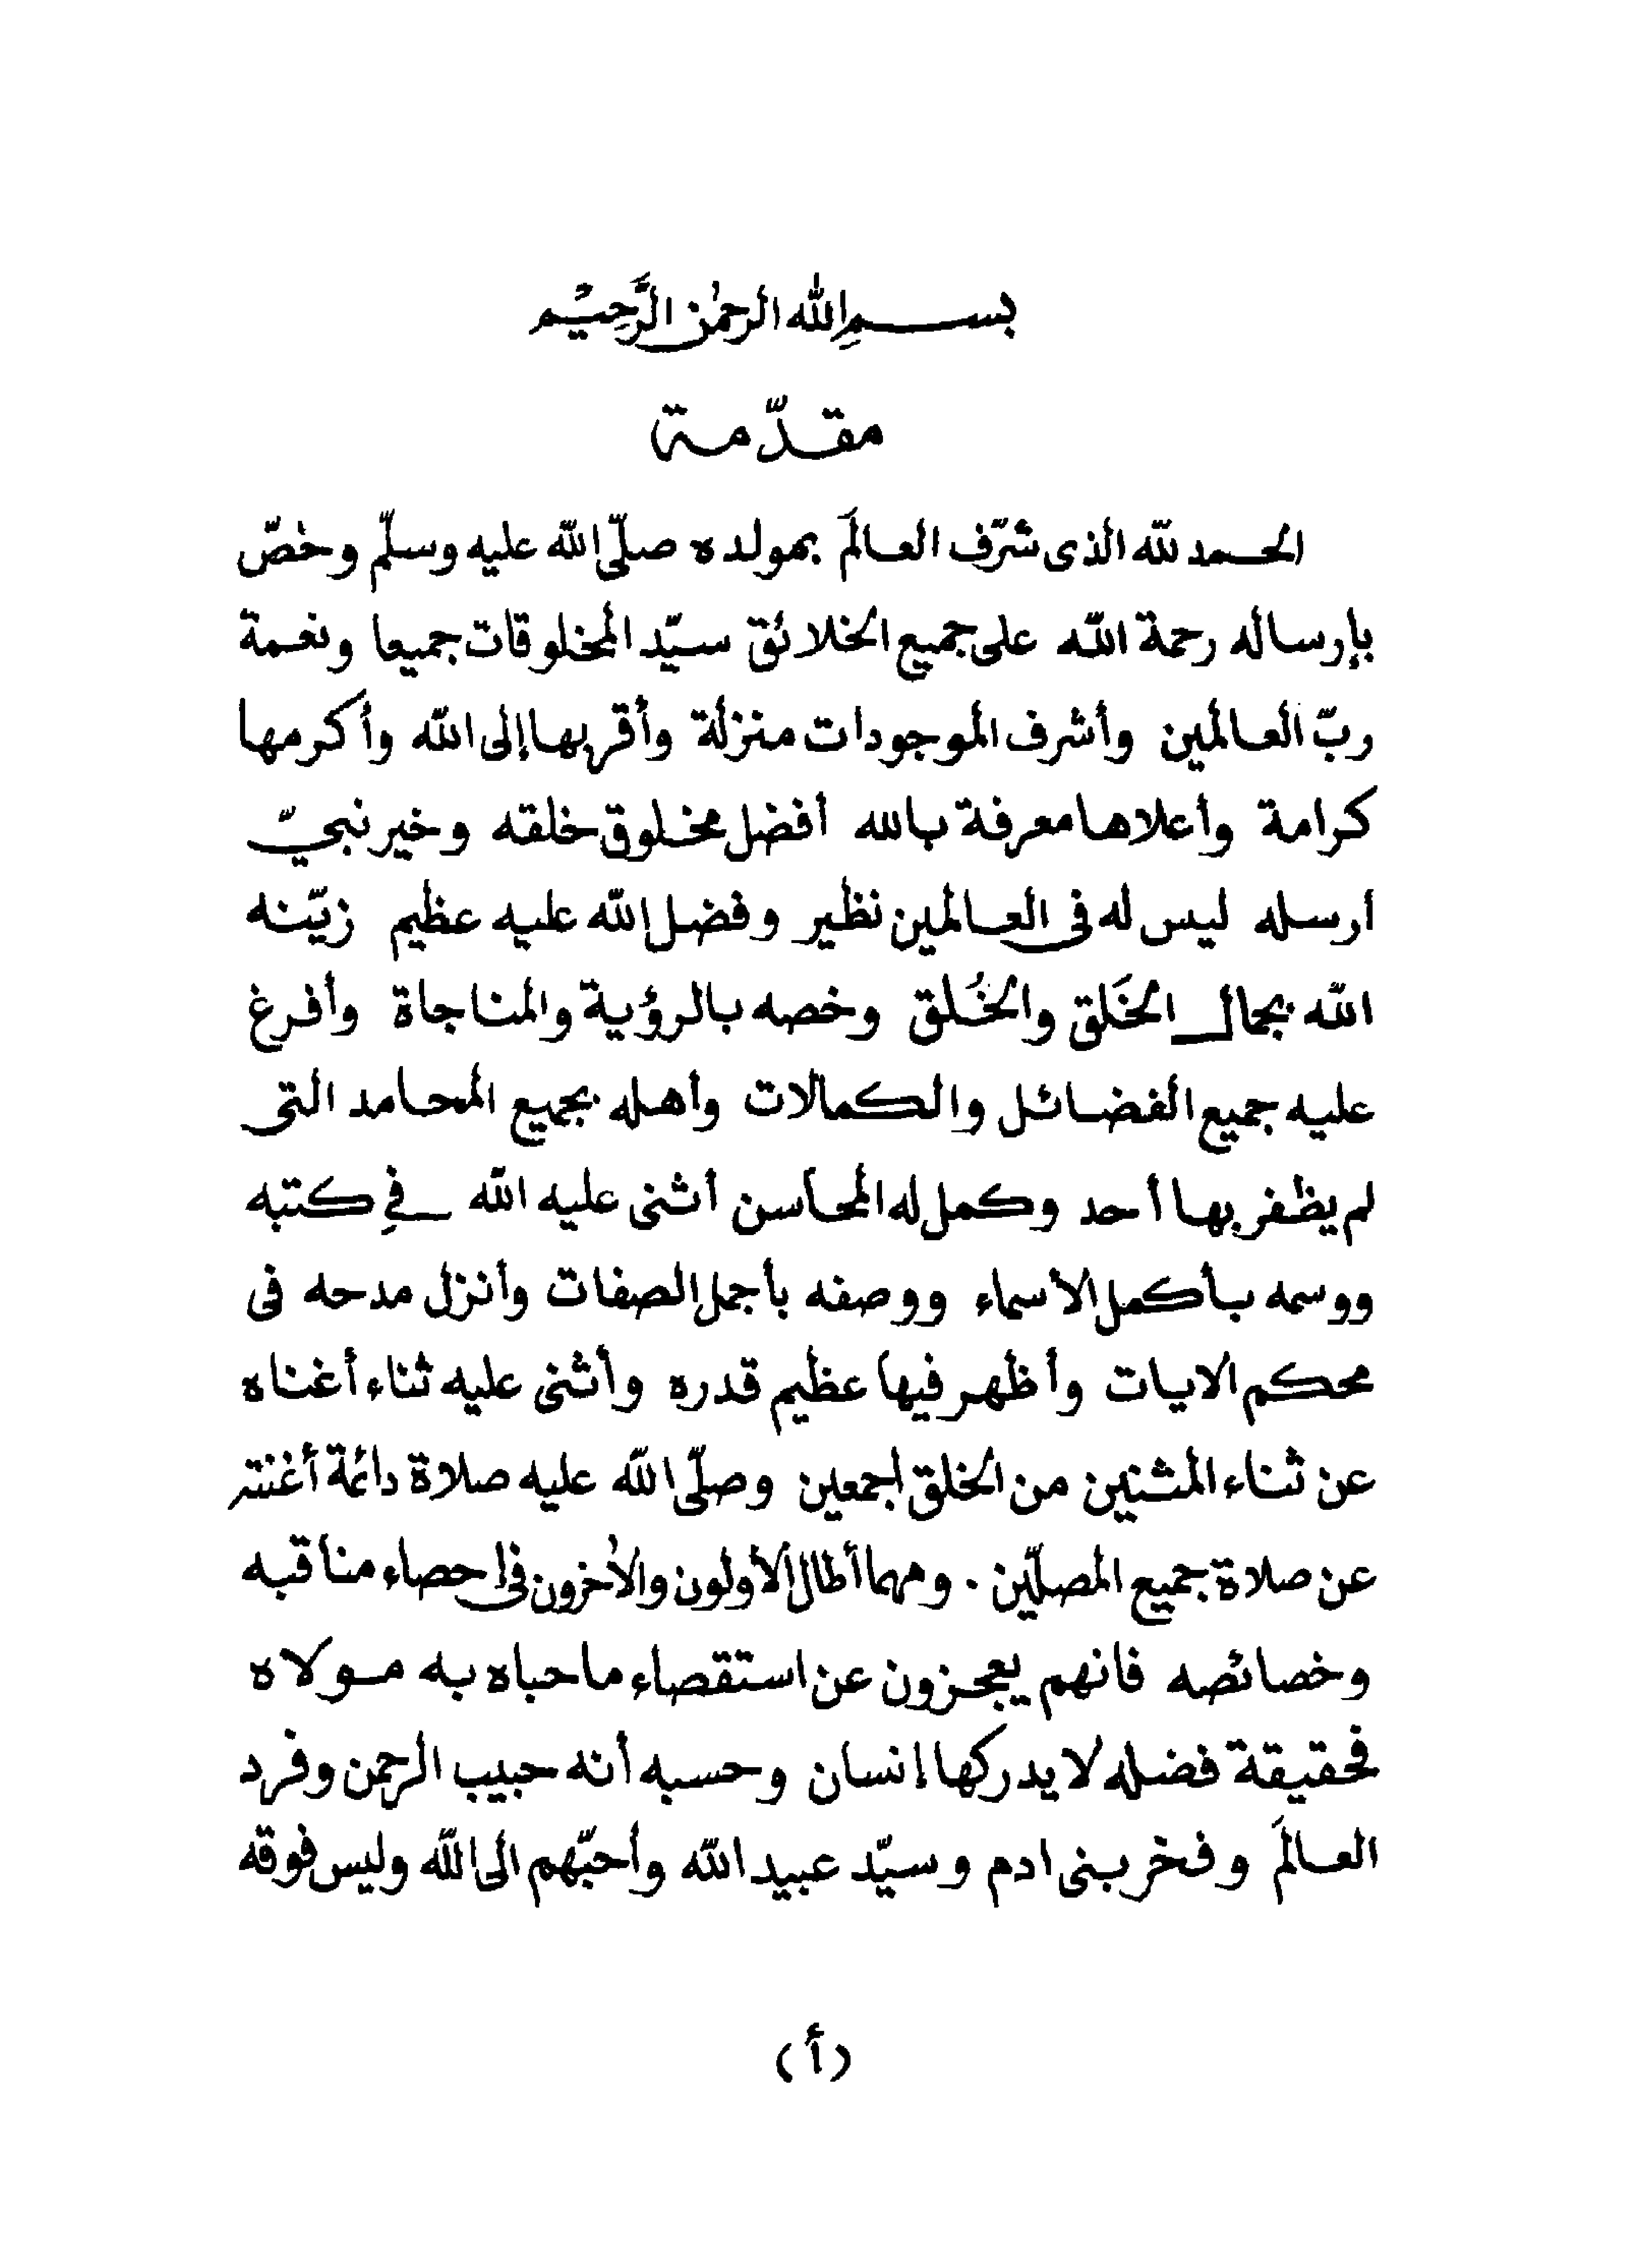 بسم الله الرحمٰن الرَّحِيْم
مقدّمة
الحمد للّه الذى شرّف العالَم بمولده صلّى اللّه عليه وسلّم وخصّ
بإرساله رحمة اللّه على جميع الخلائق سيّد المخلوقات جميعا ونعمة
ربّ العالمين وأشرف الموجودات منزلة وأقربها إلى اللّه وأكرمها
كرامة وأعلاها معرفة بالله أفضل مخلوق خلقه وخير نبيّ
ارسله ليس له فى العالمين نظير وفضل اللّه عليه عظيم زيّنه
اللّه بجمال الخَلق والخُلق وخصه بالرؤية والمناجاة وأفرغ
عليه جميع الفضائل والكمالات وأهله بجميع المحامد التى
لم يظفر بها أحد وكمل له المحاسن أثنى عليه اللّه في كتبه
ووسمه بأكمل الأسماء ووصفه بأجمل الصفات وأنزل مدحه فى
محكم الايات وأظهر فيها عظيم قدره وأثنى عليه ثناء أغناه
عن ثناء المثنين من الخلق اجمعين وصلّى اللّه عليه صلاة دائمة أغنته
عن صلاة جميع المصلّين . ومهما أطال الأولون والأخرون فى إحصاء مناقبه
وخصائصه فانهم يعجزون عن استقصاء ما حباه به مولاه
فحقيقة فضله لا يدركها إنسان وحسبه أنه حبيب الرحمن وفرد
العالَم وفخر بنى ادم وسيّد عبيد اللّه وأحبّهم الى اللّه وليس فوقه
(أ)